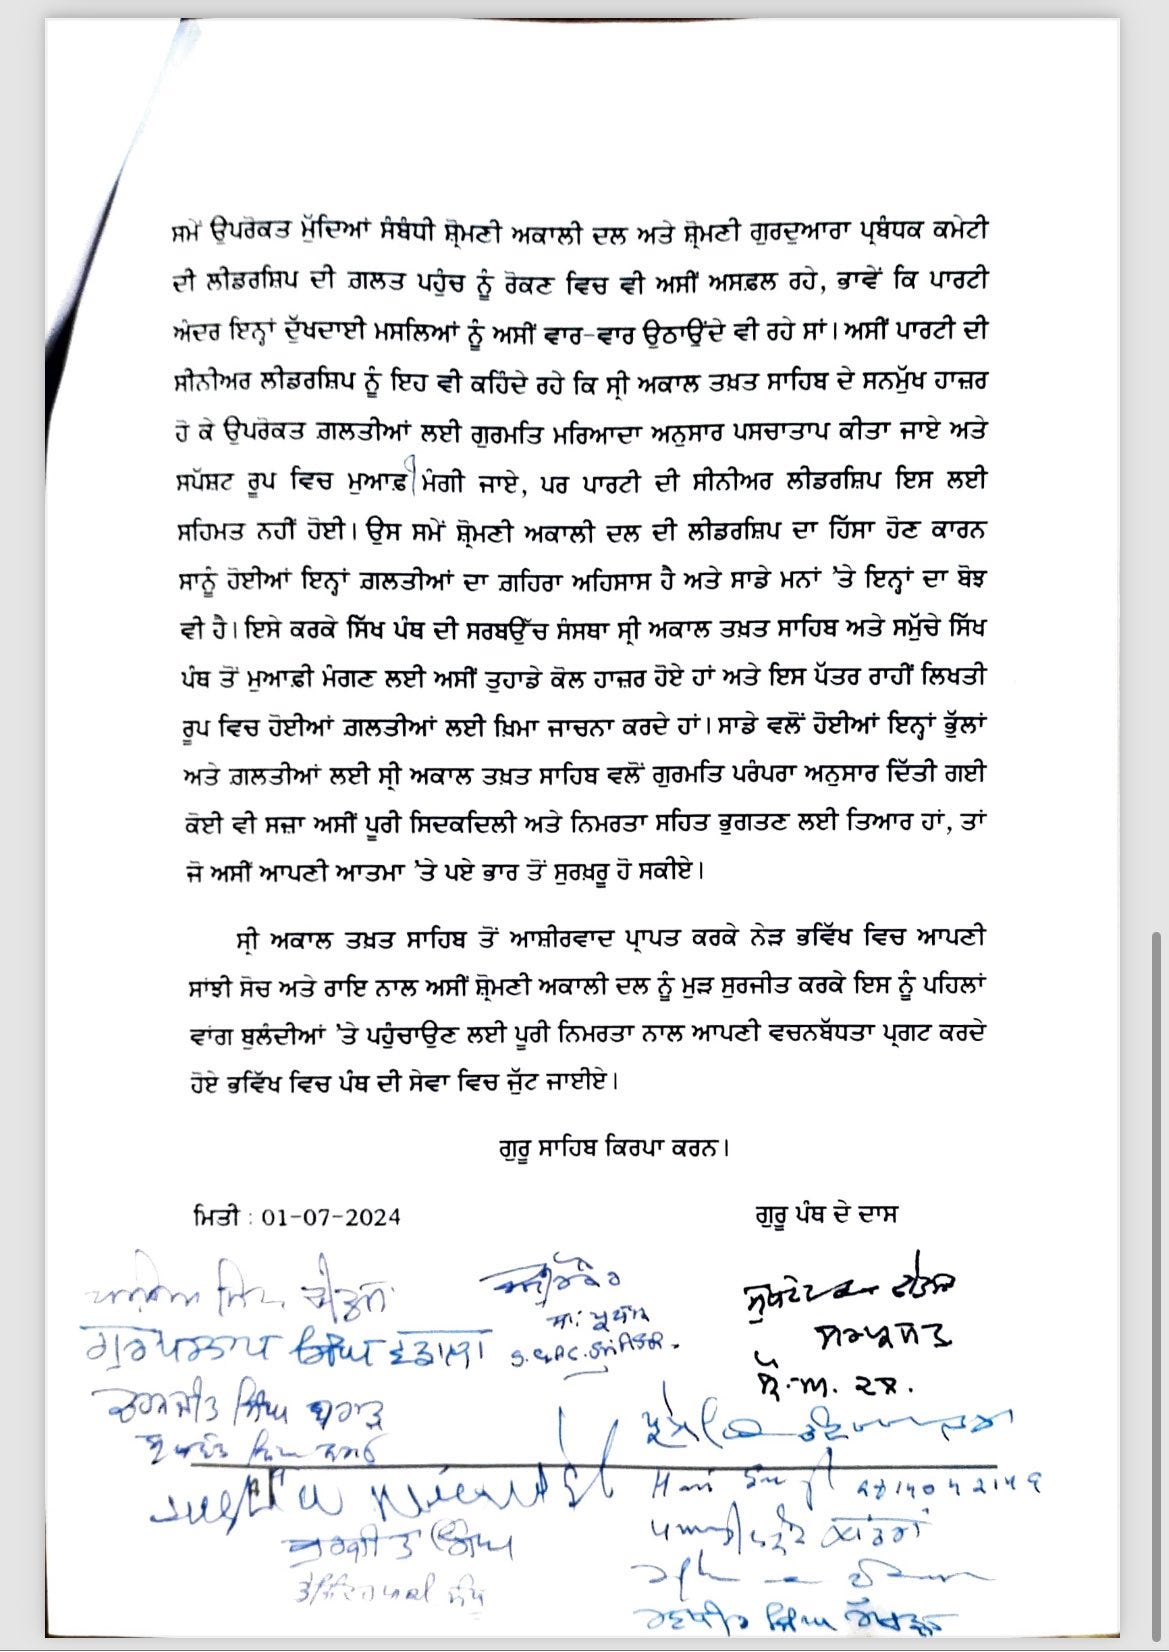 ਸਮੇਂ ਉਪਰੋਕਤ ਮੁੱਦਿਆਂ ਸੰਬੰਧੀ ਸ਼੍ਰੋਮਣੀ ਅਕਾਲੀ ਦਲ ਅਤੇ ਸ਼੍ਰੋਮਣੀ ਗੁਰਦੁਆਰਾ ਪ੍ਰਬੰਧਕ ਕਮੇਟੀ
ਦੀ ਲੀਡਰਸ਼ਿਪ ਦੀ ਗ਼ਲਤ ਪਹੁੰਚ ਨੂੰ ਰੋਕਣ ਵਿਚ ਵੀ ਅਸੀਂ ਅਸਫ਼ਲ ਰਹੇ, ਭਾਵੇਂ ਕਿ ਪਾਰਟੀ
ਅੰਦਰ ਇਨ੍ਹਾਂ ਦੁੱਖਦਾਈ ਮਸਲਿਆਂ ਨੂੰ ਅਸੀਂ ਵਾਰ-ਵਾਰ ਉਠਾਉਂਦੇ ਵੀ ਰਹੇ ਸਾਂ। ਅਸੀਂ ਪਾਰਟੀ ਦੀ
ਸੀਨੀਅਰ ਲੀਡਰਸ਼ਿਪ ਨੂੰ ਇਹ ਵੀ ਕਹਿੰਦੇ ਰਹੇ ਕਿ ਸ੍ਰੀ ਅਕਾਲ ਤਖ਼ਤ ਸਾਹਿਬ ਦੇ ਸਨਮੁੱਖ ਹਾਜ਼ਰ
ਹੋ ਕੇ ਉਪਰੋਕਤ ਗ਼ਲਤੀਆਂ ਲਈ ਗੁਰਮਤਿ ਮਰਿਆਦਾ ਅਨੁਸਾਰ ਪਸਚਾਤਾਪ ਕੀਤਾ ਜਾਏ ਅਤੇ
ਸਪੱਸ਼ਟ ਰੂਪ ਵਿਚ ਮੁਆਫ਼ੀ ਮੰਗੀ ਜਾਏ, ਪਰ ਪਾਰਟੀ ਦੀ ਸੀਨੀਅਰ ਲੀਡਰਸ਼ਿਪ ਇਸ ਲਈ
ਸਹਿਮਤ ਨਹੀਂ ਹੋਈ। ਉਸ ਸਮੇਂ ਸ਼੍ਰੋਮਣੀ ਅਕਾਲੀ ਦਲ ਦੀ ਲੀਡਰਸ਼ਿਪ ਦਾ ਹਿੱਸਾ ਹੋਣ ਕਾਰਨ
ਸਾਨੂੰ ਹੋਈਆਂ ਇਨ੍ਹਾਂ ਗ਼ਲਤੀਆਂ ਦਾ ਗ਼ਹਿਰਾ ਅਹਿਸਾਸ ਹੈ ਅਤੇ ਸਾਡੇ ਮਨਾਂ 'ਤੇ ਇਨ੍ਹਾਂ ਦਾ ਬੋਝ
ਵੀ ਹੈ। ਇਸੇ ਕਰਕੇ ਸਿੱਖ ਪੰਥ ਦੀ ਸਰਬਉੱਚ ਸੰਸਥਾ ਸ੍ਰੀ ਅਕਾਲ ਤਖ਼ਤ ਸਾਹਿਬ ਅਤੇ ਸਮੁੱਚੇ ਸਿੱਖ
ਪੰਥ ਤੋਂ ਮੁਆਫ਼ੀ ਮੰਗਣ ਲਈ ਅਸੀਂ ਤੁਹਾਡੇ ਕੋਲ ਹਾਜ਼ਰ ਹੋਏ ਹਾਂ ਅਤੇ ਇਸ ਪੱਤਰ ਰਾਹੀਂ ਲਿਖਤੀ
ਰੂਪ ਵਿਚ ਹੋਈਆਂ ਗ਼ਲਤੀਆਂ ਲਈ ਖ਼ਿਮਾ ਜਾਚਨਾ ਕਰਦੇ ਹਾਂ। ਸਾਡੇ ਵਲੋਂ ਹੋਈਆਂ ਇਨ੍ਹਾਂ ਭੁੱਲਾਂ
ਅਤੇ ਗ਼ਲਤੀਆਂ ਲਈ ਸ੍ਰੀ ਅਕਾਲ ਤਖ਼ਤ ਸਾਹਿਬ ਵਲੋਂ ਗੁਰਮਤਿ ਪਰੰਪਰਾ ਅਨੁਸਾਰ ਦਿੱਤੀ ਗਈ
ਕੋਈ ਵੀ ਸਜ਼ਾ ਅਸੀਂ ਪੂਰੀ ਸਿਦਕਦਿਲੀ ਅਤੇ ਨਿਮਰਤਾ ਸਹਿਤ ਭੁਗਤਣ ਲਈ ਤਿਆਰ ਹਾਂ, ਤਾਂ
ਜੋ ਅਸੀਂ ਆਪਣੀ ਆਤਮਾ 'ਤੇ ਪਏ ਭਾਰ ਤੋਂ ਸੁਰਖ਼ਰੂ ਹੋ ਸਕੀਏ।
ਸ੍ਰੀ ਅਕਾਲ ਤਖ਼ਤ ਸਾਹਿਬ ਤੋਂ ਆਸ਼ੀਰਵਾਦ ਪ੍ਰਾਪਤ ਕਰਕੇ ਨੇੜ ਭਵਿੱਖ ਵਿਚ ਆਪਣੀ
ਸਾਂਝੀ ਸੋਚ ਅਤੇ ਰਾਇ ਨਾਲ ਅਸੀਂ ਸ਼੍ਰੋਮਣੀ ਅਕਾਲੀ ਦਲ ਨੂੰ ਮੁੜ ਸੁਰਜੀਤ ਕਰਕੇ ਇਸ ਨੂੰ ਪਹਿਲਾਂ
ਵਾਂਗ ਬੁਲੰਦੀਆਂ 'ਤੇ ਪਹੁੰਚਾਉਣ ਲਈ ਪੂਰੀ ਨਿਮਰਤਾ ਨਾਲ ਆਪਣੀ ਵਚਨਬੱਧਤਾ ਪ੍ਰਗਟ ਕਰਦੇ
ਹੋਏ ਭਵਿੱਖ ਵਿਚ ਪੰਥ ਦੀ ਸੇਵਾ ਵਿਚ ਜੁੱਟ ਜਾਈਏ।
ਗੁਰੂ ਸਾਹਿਬ ਕਿਰਪਾ ਕਰਨ।
ਮਿਤੀ : 01-07-2024 ਗੁਰੂ ਪੰਥ ਦੇ ਦਾਸ
ਗੁਰਪਰਤਾਪ ਸਿੰਘ ਵਡਾਲਾ
ਚਰਨਜੀਤ ਸਿੰਘ ਬਰਾੜ